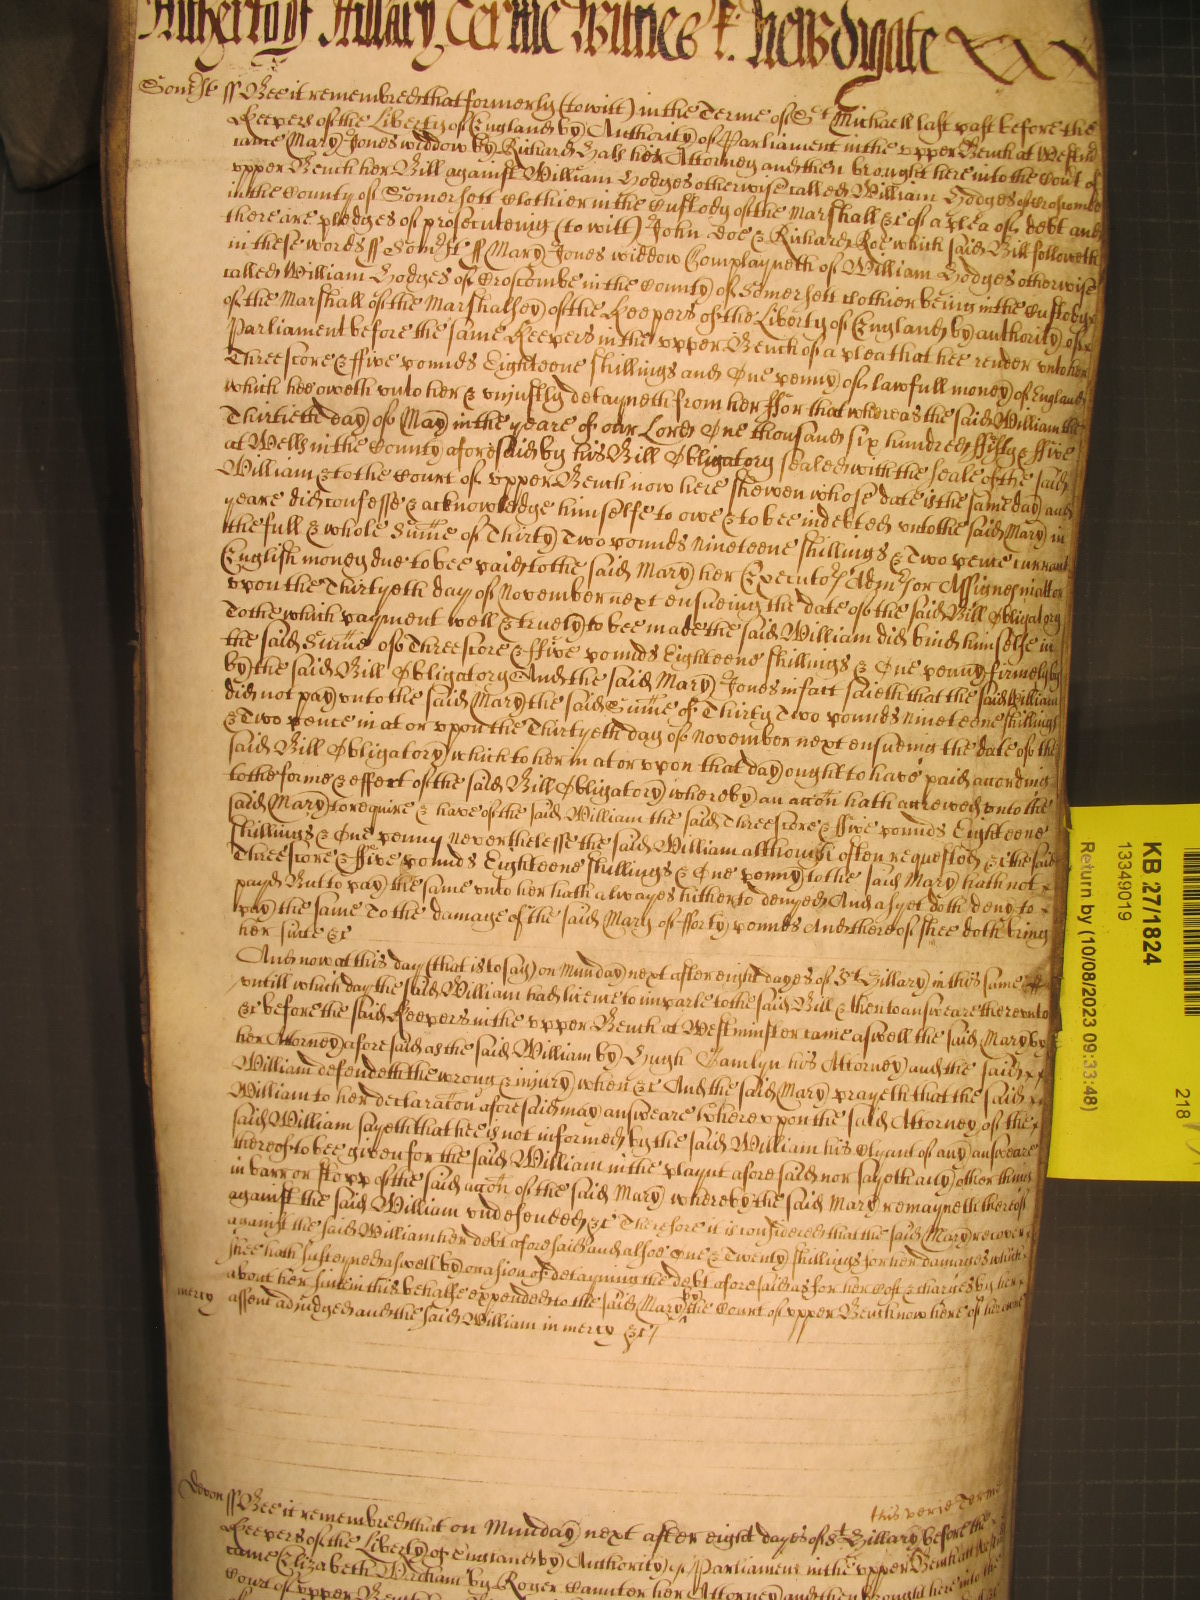 Hitherto of Hillary Terme Witnes R: Newdigate
Somst ss Bee it remembred that formerly (to witt) in the Terme of St Michaell last past before the
Keepers of the Liberty of England by Authority of Parliament in the upper Bench at Westm
came Mary Jones widdow by Richard Hals her Attorney and then brought here into the Court of
upper Bench her Bill against William Hodges otherwise called William Hodges of Croscombe
in the County of Somersett Clothier in the Custody of the Marshall &c of a plea of debt and
there are pledges of prosecuteing (to witt) John Doe & Richard Roe which said Bill followeth
in these words ss Somst ss Mary Jones widdow Complayneth of William Hodges otherwise
called William Hodges of Croscombe in the County of Somersett Clothier being in the Custody
of the Marshall of the Marshalsey of the Keepers of the Liberty of England by authority of
Parliament before the same Keepers in the upper Bench of a plea that hee render unto her
Threescore & ffive pounds Eighteene shillings and One penny of lawfull money of England
which hee oweth unto her & unjustly detayneth from her ffor that whereas the said William the
Thirtieth day of May in the yeare of our Lord One thousand six hundred ffifty & ffive
at Wells in the County aforesaid by his Bill Obligatory sealed with the seale of the said
William & to the Court of upper Bench now here shewen whose date is the same day and
yeare did confesse & acknowledge himselfe to owe & to bee indebted unto the said Mary in
the full & whole Sume of Thirty Two pounds Nineteene shillings & Two pence currant
English money due to bee paid to the said Mary her Executors Admrs or Assignes in atto
upon the Thirtyeth day of November next ensueing the date of the said Bill Obligatory
To the which payment well & truely to bee made the said William did bind himselfe in
the said Sume of Threescore & ffive pounds Eighteene shillings & One penny firmely by
by the said Bill Obligatory And the said Mary Jones in fact saieth that the said William
did not pay unto the said Mary the said Sume of Thirty Two pounds Nineteene shillings
& Two pence in at or uppon the Thirtyeth day of November next ensueing the date of the
said Bill Obligatory which to her in at or upon that day ought to have paid according
to the forme & effect of the said Bill Obligatory whereby an accon hath accrewed unto the
said Mary to require & have of the said William the said Threescore & ffive pounds Eighteene
shillings & One penny Neverthelesse the said William although often requested &c the said
Threescore & ffive pounds Eighteene shillings & One penny to the said Mary hath not
payd But to pay the same unto her hath alwayes hitherto denyed And as yet doth deny to
pay the same To the damage of the said Mary of fforty pounds And thereof shee doth bring
her suite &c
And now at this day (that is to say) on Munday next after eight dayes of St Hillary in this same
untill which day the said William had licence to imparle to the said Bill & then to answeare thereunto
&c before the said Keepers in the upper Bench at Westminster came aswell the said Mary by
her Attorney aforesaid as the said William by Hugh Hamlyn his Attorney and the said
William defendeth the wrong & injury when &c And the said Mary prayeth that the said
William to her declaracon aforesaid may answeare Whereupon the said Attorney of the
said William sayeth that hee is not informed by the said William his Clyant of any answeare
thereof to bee given for the said William in the playnt aforesaid nor sayoth any other thing
in barr or stopp of the said accon of the said Mary whereby the said Mary remayneth thereof
against the said William undefended &c Therefore it is considered that the said Mary recover
against the said William her debt aforesaid and alsoe One & Twenty shillings for her damages which
shee hath susteyned aswell by occasion of detayning the debt aforesaid as for her Cost & charges by her
about her suite in this behalfe expended to the said Mary by the Court of upper Bench now here of her owne
mercy assent adjudged and the said William in mercy &c
this verie Terme
Devon ss Bee it remembred that on Munday next after eight dayes of St Hillary before the
Keepers of the Liberty of England by Authority of Parliament in the upper Bench at Westm
came Elizabeth by Roger Caunter her Attorney and then brought here into the
Court of upper Bench
KB 27/1824
133490019
Return by (10/08/2023 09:33:48)
218